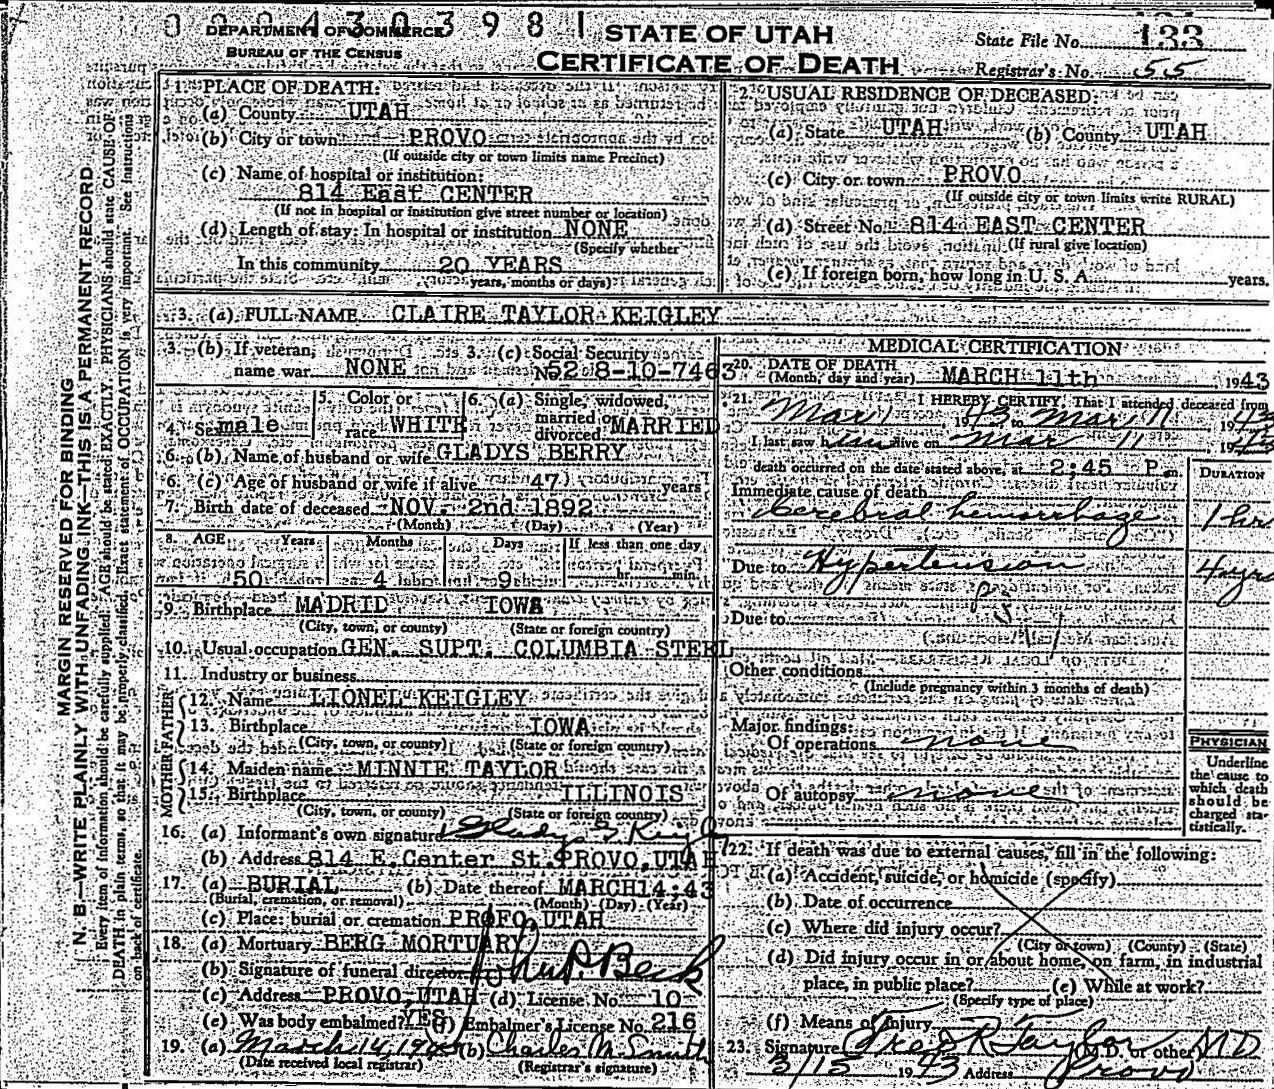 0 0 0 4 3 0 3 9 8 1
DEPARTMENT OF COMMERCE
BUREAU OF THE CENSUS
STATE OF UTAH
CERTIFICATE OF DEATH
State File No. 133
Registrar's No. 55
MARGIN RESERVED FOR BINDING
N. B.—WRITE PLAINLY WITH UNFADING INK—THIS IS A PERMANENT RECORD
Every item of information should be carefully supplied. AGE should be stated EXACTLY. PHYSICIANS should state CAUSE OF
DEATH in plain terms, so that it may be properly classified. Exact statement of OCCUPATION is very important. See instructions
on back of certificate.
1. PLACE OF DEATH:
(a) County UTAH
(b) City or town PROVO
(If outside city or town limits name Precinct)
(c) Name of hospital or institution:
814 East CENTER
(If not in hospital or institution give street number or location)
(d) Length of stay: In hospital or institution NONE
(Specify whether
In this community 20 YEARS
years, months or days)
2. USUAL RESIDENCE OF DECEASED:
(a) State UTAH (b) County UTAH
(c) City or town PROVO
(If outside city or town limits write RURAL)
(d) Street No. 814 EAST CENTER
(If rural give location)
(e) If foreign born, how long in U. S. A. years.
3. (a) FULL NAME CLAIRE TAYLOR KEIGLEY
3. (b) If veteran, name war NONE
3. (c) Social Security No. 528-10-7463
4. Sex male
5. Color or race WHITE
6. (a) Single, widowed, married or divorced MARRIED
6. (b) Name of husband or wife GLADYS BERRY
6. (c) Age of husband or wife if alive 47 years
7. Birth date of deceased NOV. 2nd 1892
(Month) (Day) (Year)
8. AGE Years Months Days If less than one day
50 4 9 hr. min.
9. Birthplace MADRID IOWA
(City, town, or county) (State or foreign country)
10. Usual occupation GEN. SUPT. COLUMBIA STEEL
11. Industry or business
FATHER
12. Name LIONEL KEIGLEY
13. Birthplace IOWA
(City, town, or county) (State or foreign country)
MOTHER
14. Maiden name MINNIE TAYLOR
15. Birthplace ILLINOIS
(City, town, or county) (State or foreign country)
16. (a) Informant's own signature Gladys B Keigley
(b) Address 814 E. Center St. PROVO, UTAH
17. (a) BURIAL (b) Date thereof MARCH14:43
(Burial, cremation, or removal) (Month) (Day) (Year)
(c) Place: burial or cremation PROFO UTAH
18. (a) Mortuary BERG MORTUARY
(b) Signature of funeral director
(c) Address PROVO, UTAH (d) License No. 10
(e) Was body embalmed? YES (f) Embalmer's License No. 216
19. (a) March 14, (b) Charles M. Smith
(Date received local registrar) (Registrar's signature)
MEDICAL CERTIFICATION
20. DATE OF DEATH
(Month, day and year) MARCH 11th 1943
21. I HEREBY CERTIFY, That I attended deceased from
Mar 1 1943 to Mar 11 1943
I last saw him alive on Mar 11 1943
death occurred on the date stated above, at 2:45 P m.
DURATION
Immediate cause of death
Cerebral hemorrhage 1 hr
Due to Hypertension 4 yrs
Due to
Other conditions
(Include pregnancy within 3 months of death)
Major findings:
Of operations none
Of autopsy none
PHYSICIAN
Underline
the cause to
which death
should be
charged sta-
tistically.
22. If death was due to external causes, fill in the following:
(a) Accident, suicide, or homicide (specify)
(b) Date of occurrence
(c) Where did injury occur?
(City or town) (County) (State)
(d) Did injury occur in or about home, on farm, in industrial
place, in public place? (e) While at work?
(Specify type of place)
(f) Means of Injury
23. Signature Fred R Taylor (M.D. or other) MD
3/13 1943 Address Provo